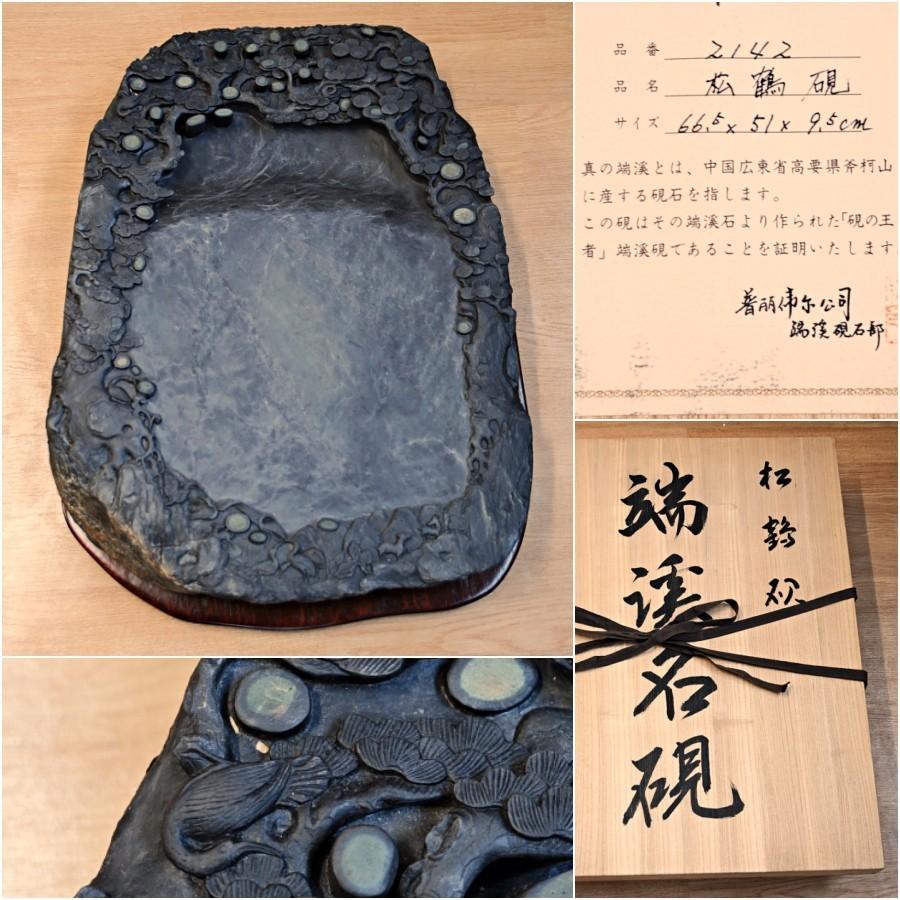 品番 2142
品名 松鶴硯
サイズ 66.5×51×9.5cm
真の端溪とは、中国広東省高要県斧柯山
に産する硯石を指します。
この硯はその端溪石より作られた「硯の王
者」端溪硯であることを証明いたします
普丽伟尔公司
端溪硯石部
松鶴硯
端溪名硯